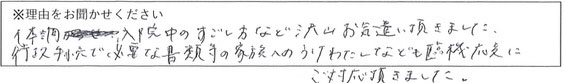 ※理由をお聞かせください
体調 入院中のすごし方など沢山お気遣い頂きました、
行政利穴で必要な書類等の家族へのうけわたしなども臨機応変に
ご対応頂きました。